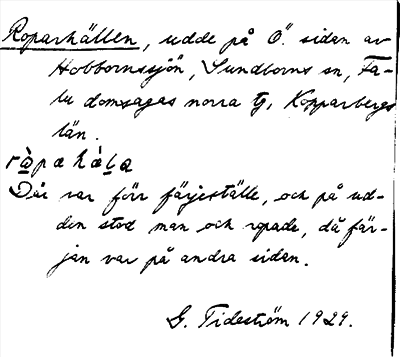 Roparhällen, udde på Ö. sidan av
Hobbornssjön, Sundborns sn, Fa-
lu domsagas norra tg, Kopparbergs
län.
rὰ̱pahὰḻa
Där var förr färjeställe, och på ud-
den stod man och ropade, då fär-
jan var på andra sidan.
G. Tideström 1929.